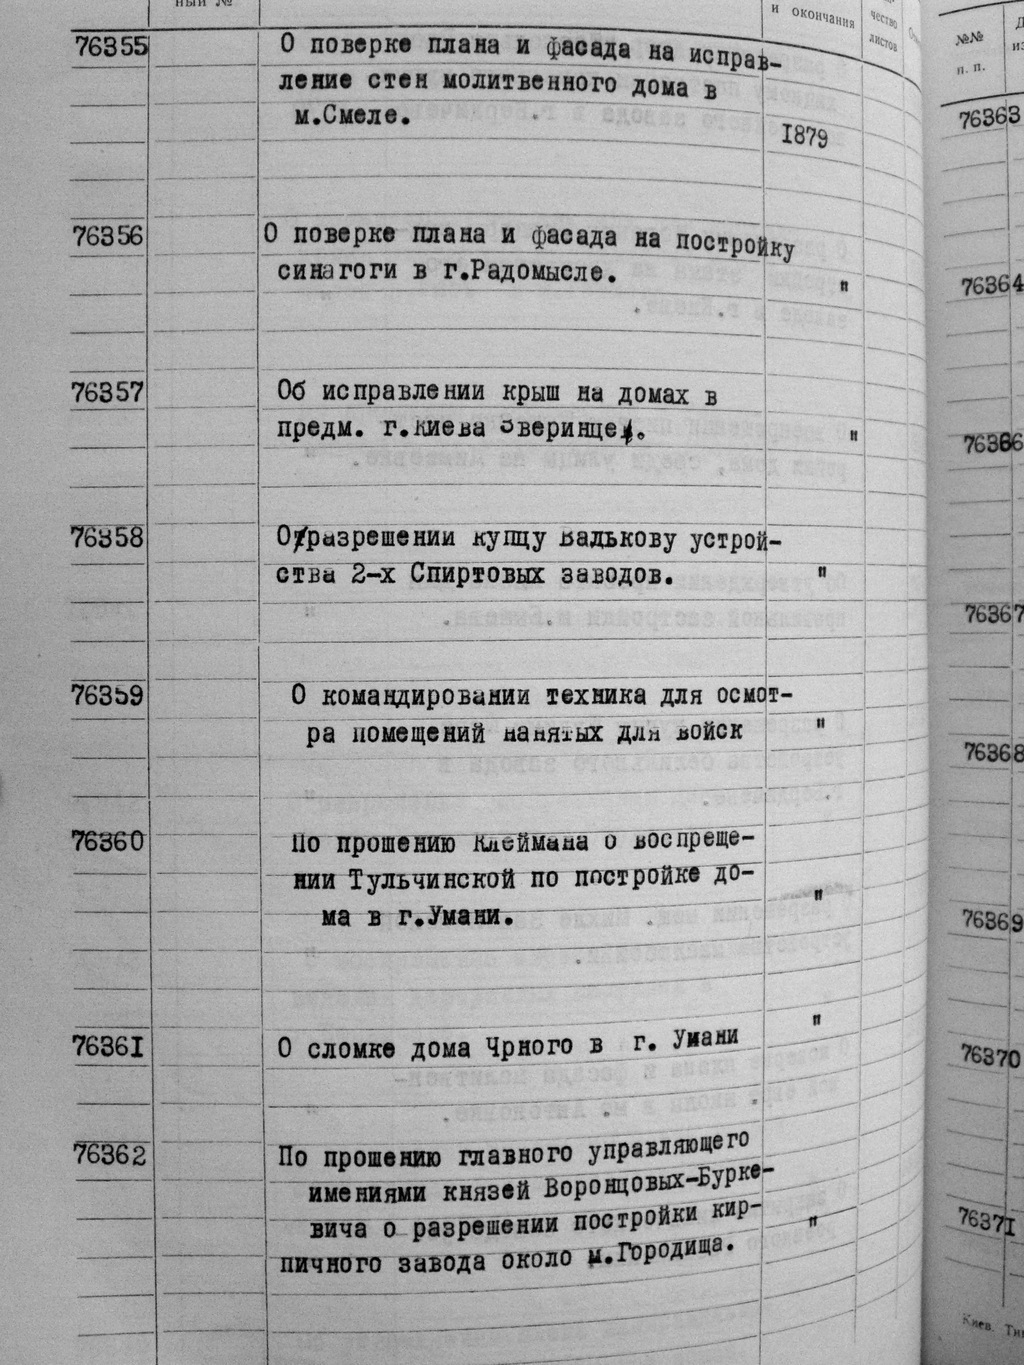 ный №
и окончания
чество
листов
76355 О поверке плана и фасада на исправ-
ление стен молитвенного дома в
м.Смеле.
1879
76356 О поверке плана и фасада на постройку
синагоги в г.Радомысле. "
76357 Об исправлении крыш на домах в
предм. г.Киева Зверинце. "
76358 О разрешении купцу Валькову устрой-
ства 2-х Спиртовых заводов. "
76359 О командировании техника для осмот-
ра помещений нанятых для войск "
76360 По прошению Клеймана о воспреще-
нии Тульчинской по постройке до-
ма в г.Умани. "
76361 О сломке дома Чрного в г. Умани "
76362 По прошению главного управляющего
имениями князей Воронцовых-Бурке-
вича о разрешении постройки кир-
пичного завода около м.Городища. "
№№
п. п.
76363
76364
76366
76367
76368
76369
76370
76371
Киев.